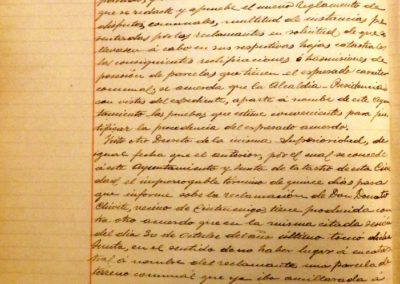 que se redacte y apruebe el nuevo Reglamento de
disfrutes comunales, multitud de instancias pre-
sentadas por los reclamantes en solicitud de que se
lleven á cabo en sus respectivas hojas catastrales
las consiguientes rectificaciones ó transmisiones de
posesión de parcelas que tienen el expresado caracter
comunal, se acuerda que la Alcaldia Presidencia
con vista del expediente, aporte á nombre de este Ayun-
tamiento las pruebas que estime convenientes para jus-
tificar la procedencia del expresado acuerdo.
Visto otro Decreto de la misma Superioridad, de
igual fecha que el anterior, por el cual se concede
á este Ayuntamiento y Junta de Catastro de esta Ciu-
dad, el improrrogable término de quince dias para
que informe sobre la reclamación de Don Donato
Chivite, vecino de Cintruenigo, tiene producida con-
tra otro acuerdo que en la misma citada sesión
del dia 30 de Octubre del año último tomó dicha
Junta, en el sentido de no haber lugar á encatas-
trar á nombre del reclamante, una parcela de
terreno comunal que ya iba amillarada á